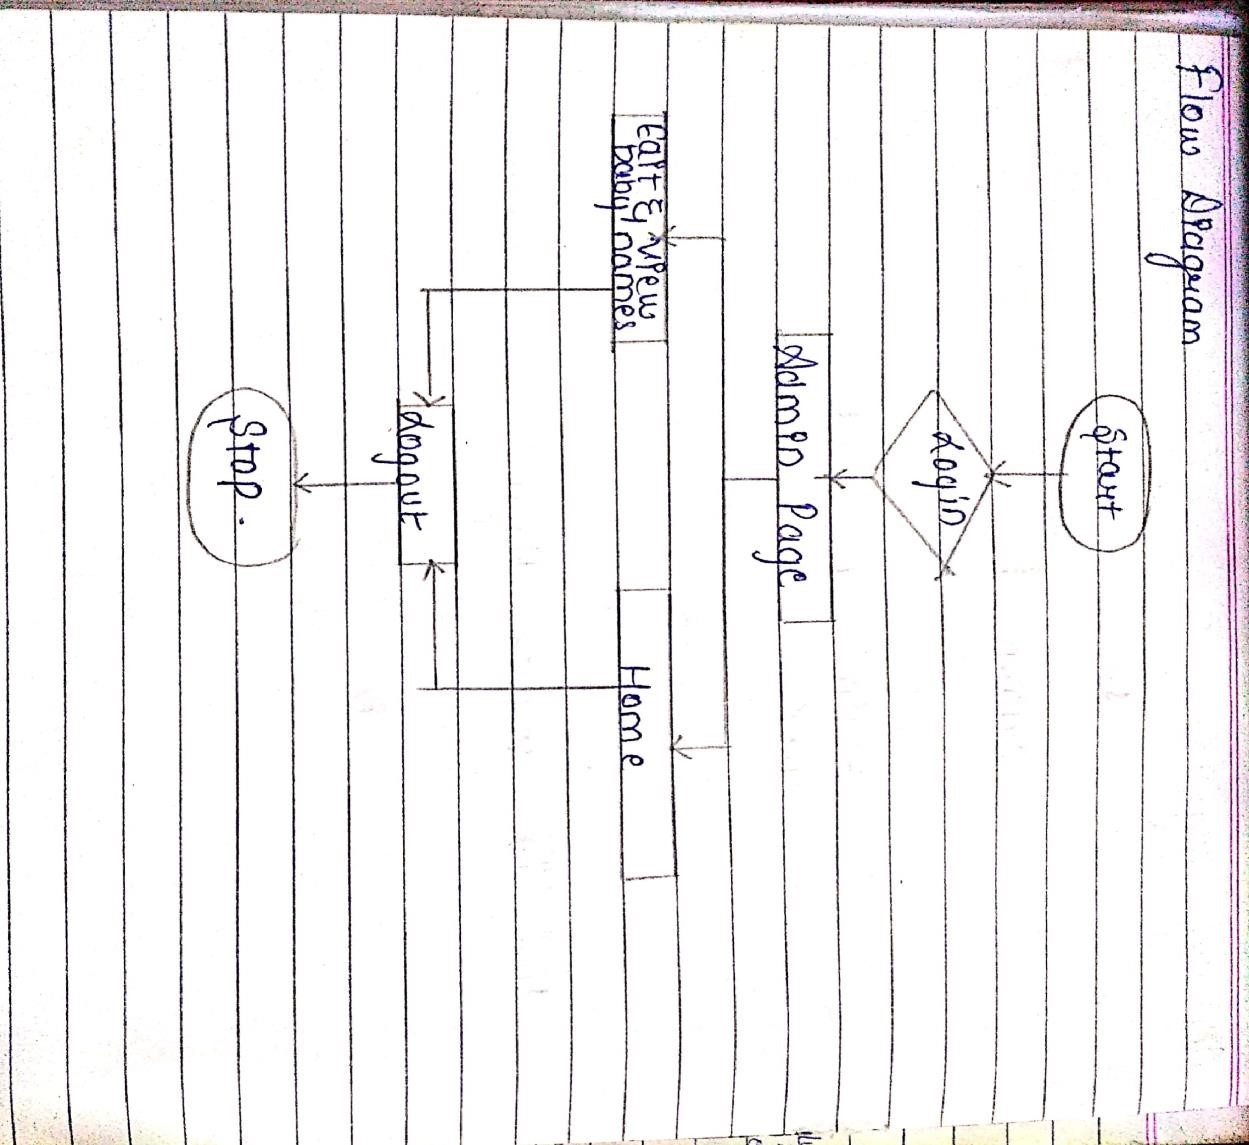 Flow Diagram
Start
Login
Admin Page
Edit & view
baby names
Home
Logout
Stop.